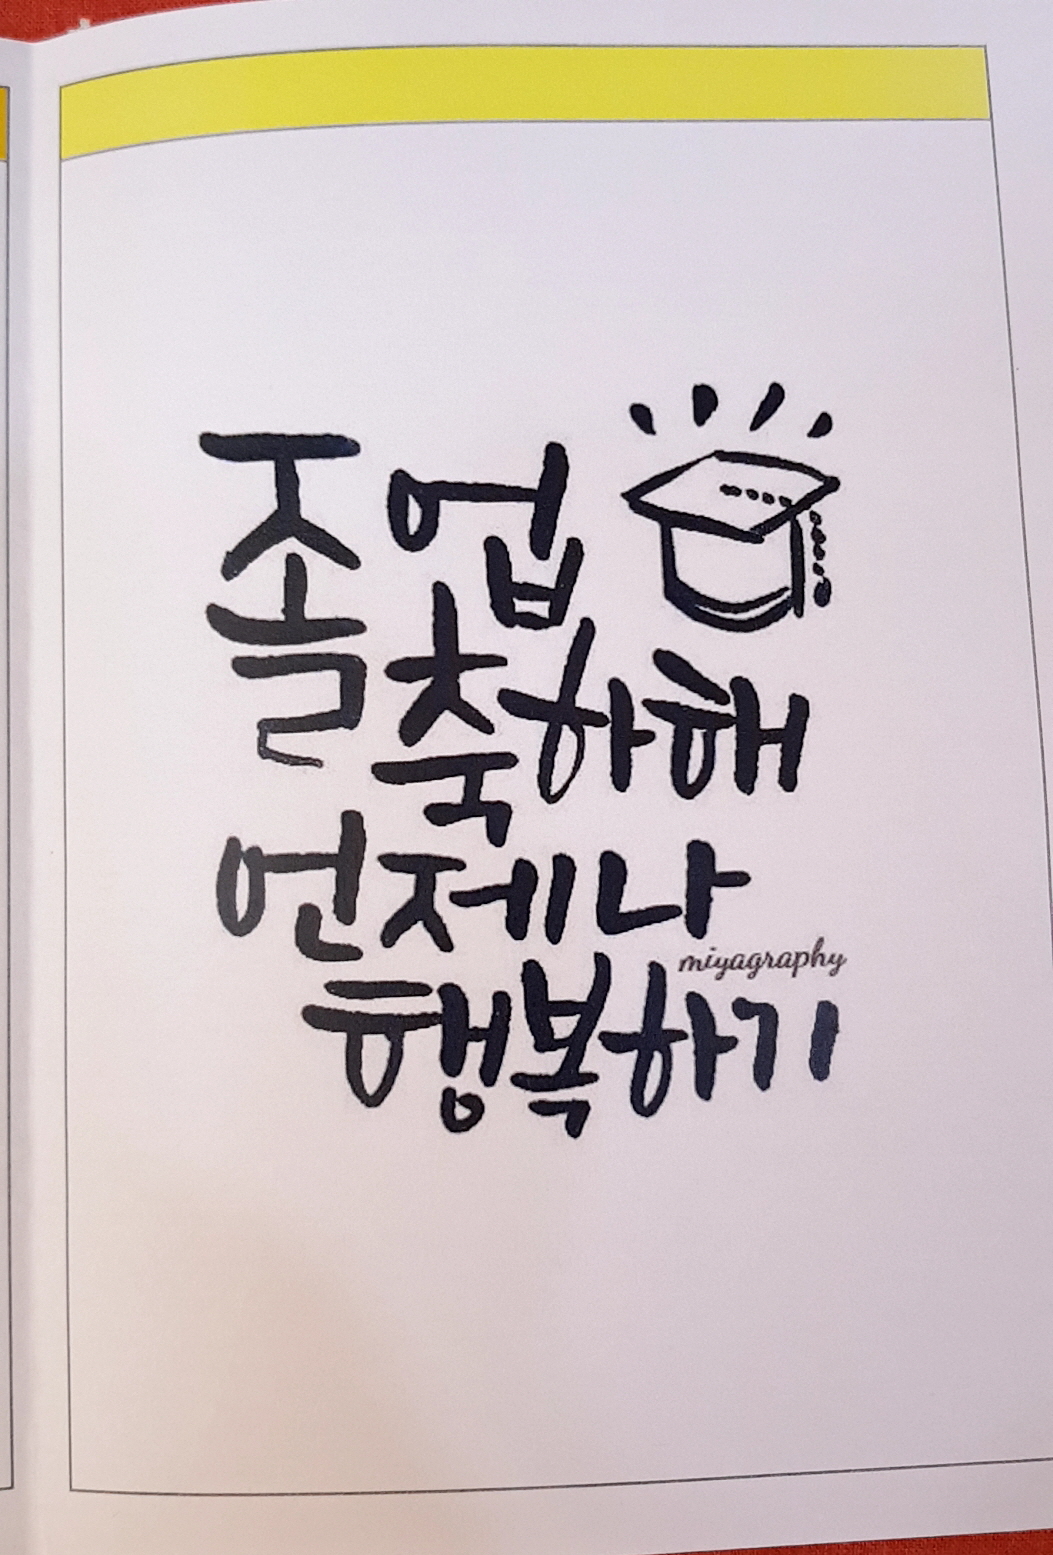 졸업
축하해
언제나
miyagraphy
행복하기